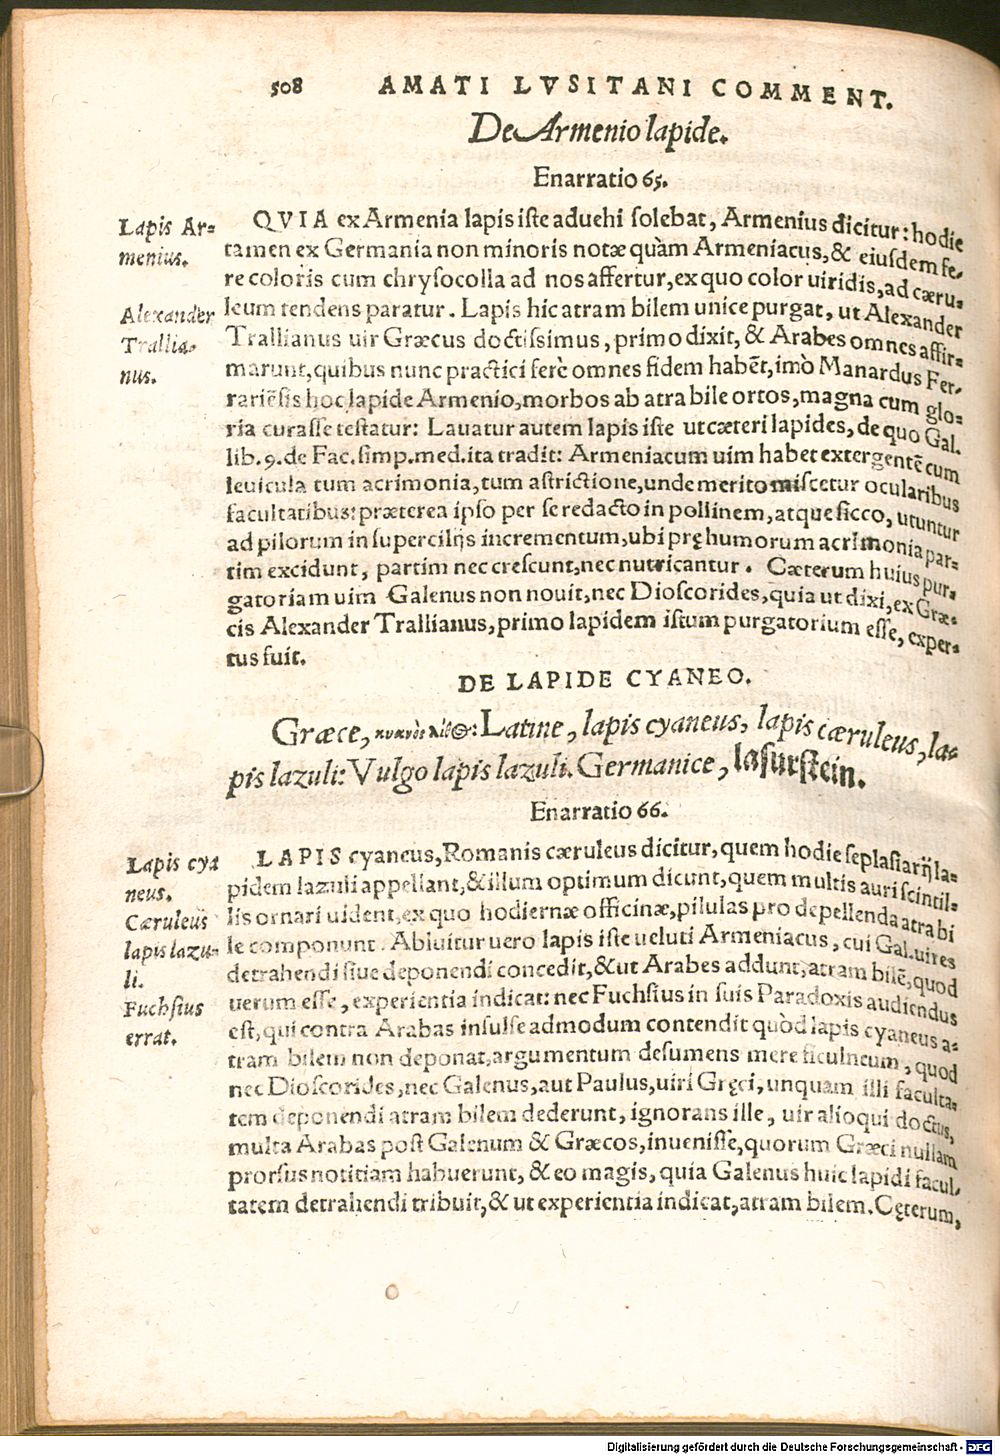 508 AMATI LVSITANI COMMENT.
De Armenio lapide.
Enarratio 65.
Lapis Ar-
menius.
QVIA ex Armenia lapis iste aduehi solebat, Armenius dicitur: hodie
tamen ex Germania non minoris notæ quàm Armeniacus, & eiusdem fe-
re coloris cum chrysocolla ad nos affertur, ex quo color uiridis, ad cæru-
Alexander
Trallia-
nus.
leum tendens paratur. Lapis hic atram bilem unice purgat, ut Alexander
Trallianus uir Græcus doctissimus, primo dixit, & Arabes omnes affir-
marunt, quibus nunc practici ferè omnes fidem habēt, imò Manardus Fer-
rariēsis hoc lapide Armenio, morbos ab atra bile ortos, magna cum glo-
ria curasse testatur: Lauatur autem lapis iste ut cæteri lapides, de quo Gal.
lib. 9. de Fac. simp. med. ita tradit: Armeniacum uim habet extergentē cum
leuicula tum acrimonia, tum astrictione, unde merito miscetur ocularibus
facultatibus: præterea ipso per se redacto in pollinem, atque sicco, utuntur
ad pilorum in supercilijs incrementum, ubi prę humorum acrimonia par-
tim excidunt, partim nec crescunt, nec nutricantur. Cæterum huius pur-
gatoriam uim Galenus non nouit, nec Dioscorides, quia ut dixi, ex Græ-
cis Alexander Trallianus, primo lapidem istum purgatorium esse, exper-
tus fuit.
DE LAPIDE CYANEO.
Græce, κυανὸς λίθος: Latine, lapis cyaneus, lapis cæruleus, la-
pis lazuli: Vulgo lapis lazuli. Germanice, lasurstein.
Enarratio 66.
Lapis cya
neus.
Cæruleus
lapis lazu-
li.
Fuchsius
errat.
LAPIS cyaneus, Romanis cæruleus dicitur, quem hodie seplasiarij la-
pidem lazuli appellant, & illum optimum dicunt, quem multis auri scintil-
lis ornari uident, ex quo hodiernæ officinæ, pilulas pro depellenda atra bi
le componunt. Abluitur uero lapis iste ueluti Armeniacus, cui Gal. uires
detrahendi siue deponendi concedit, & ut Arabes addunt, atram bilē, quod
uerum esse, experientia indicat: nec Fuchsius in suis Paradoxis audiendus
est, qui contra Arabas insulse admodum contendit quòd lapis cyaneus a-
tram bilem non deponat, argumentum desumens mere ficulneum, quod
nec Dioscorides, nec Galenus, aut Paulus, uiri Gręci, unquam illi faculta-
tem deponendi atram bilem dederunt, ignorans ille, uir alioqui doctus,
multa Arabas post Galenum & Græcos, inuenisse, quorum Græci nullam
prorsus notitiam habuerunt, & eo magis, quia Galenus huic lapidi facul-
tatem detrahendi tribuit, & ut experientia indicat, atram bilem. Cęterum,
Digitalisierung gefördert durch die Deutsche Forschungsgemeinschaft - DFG